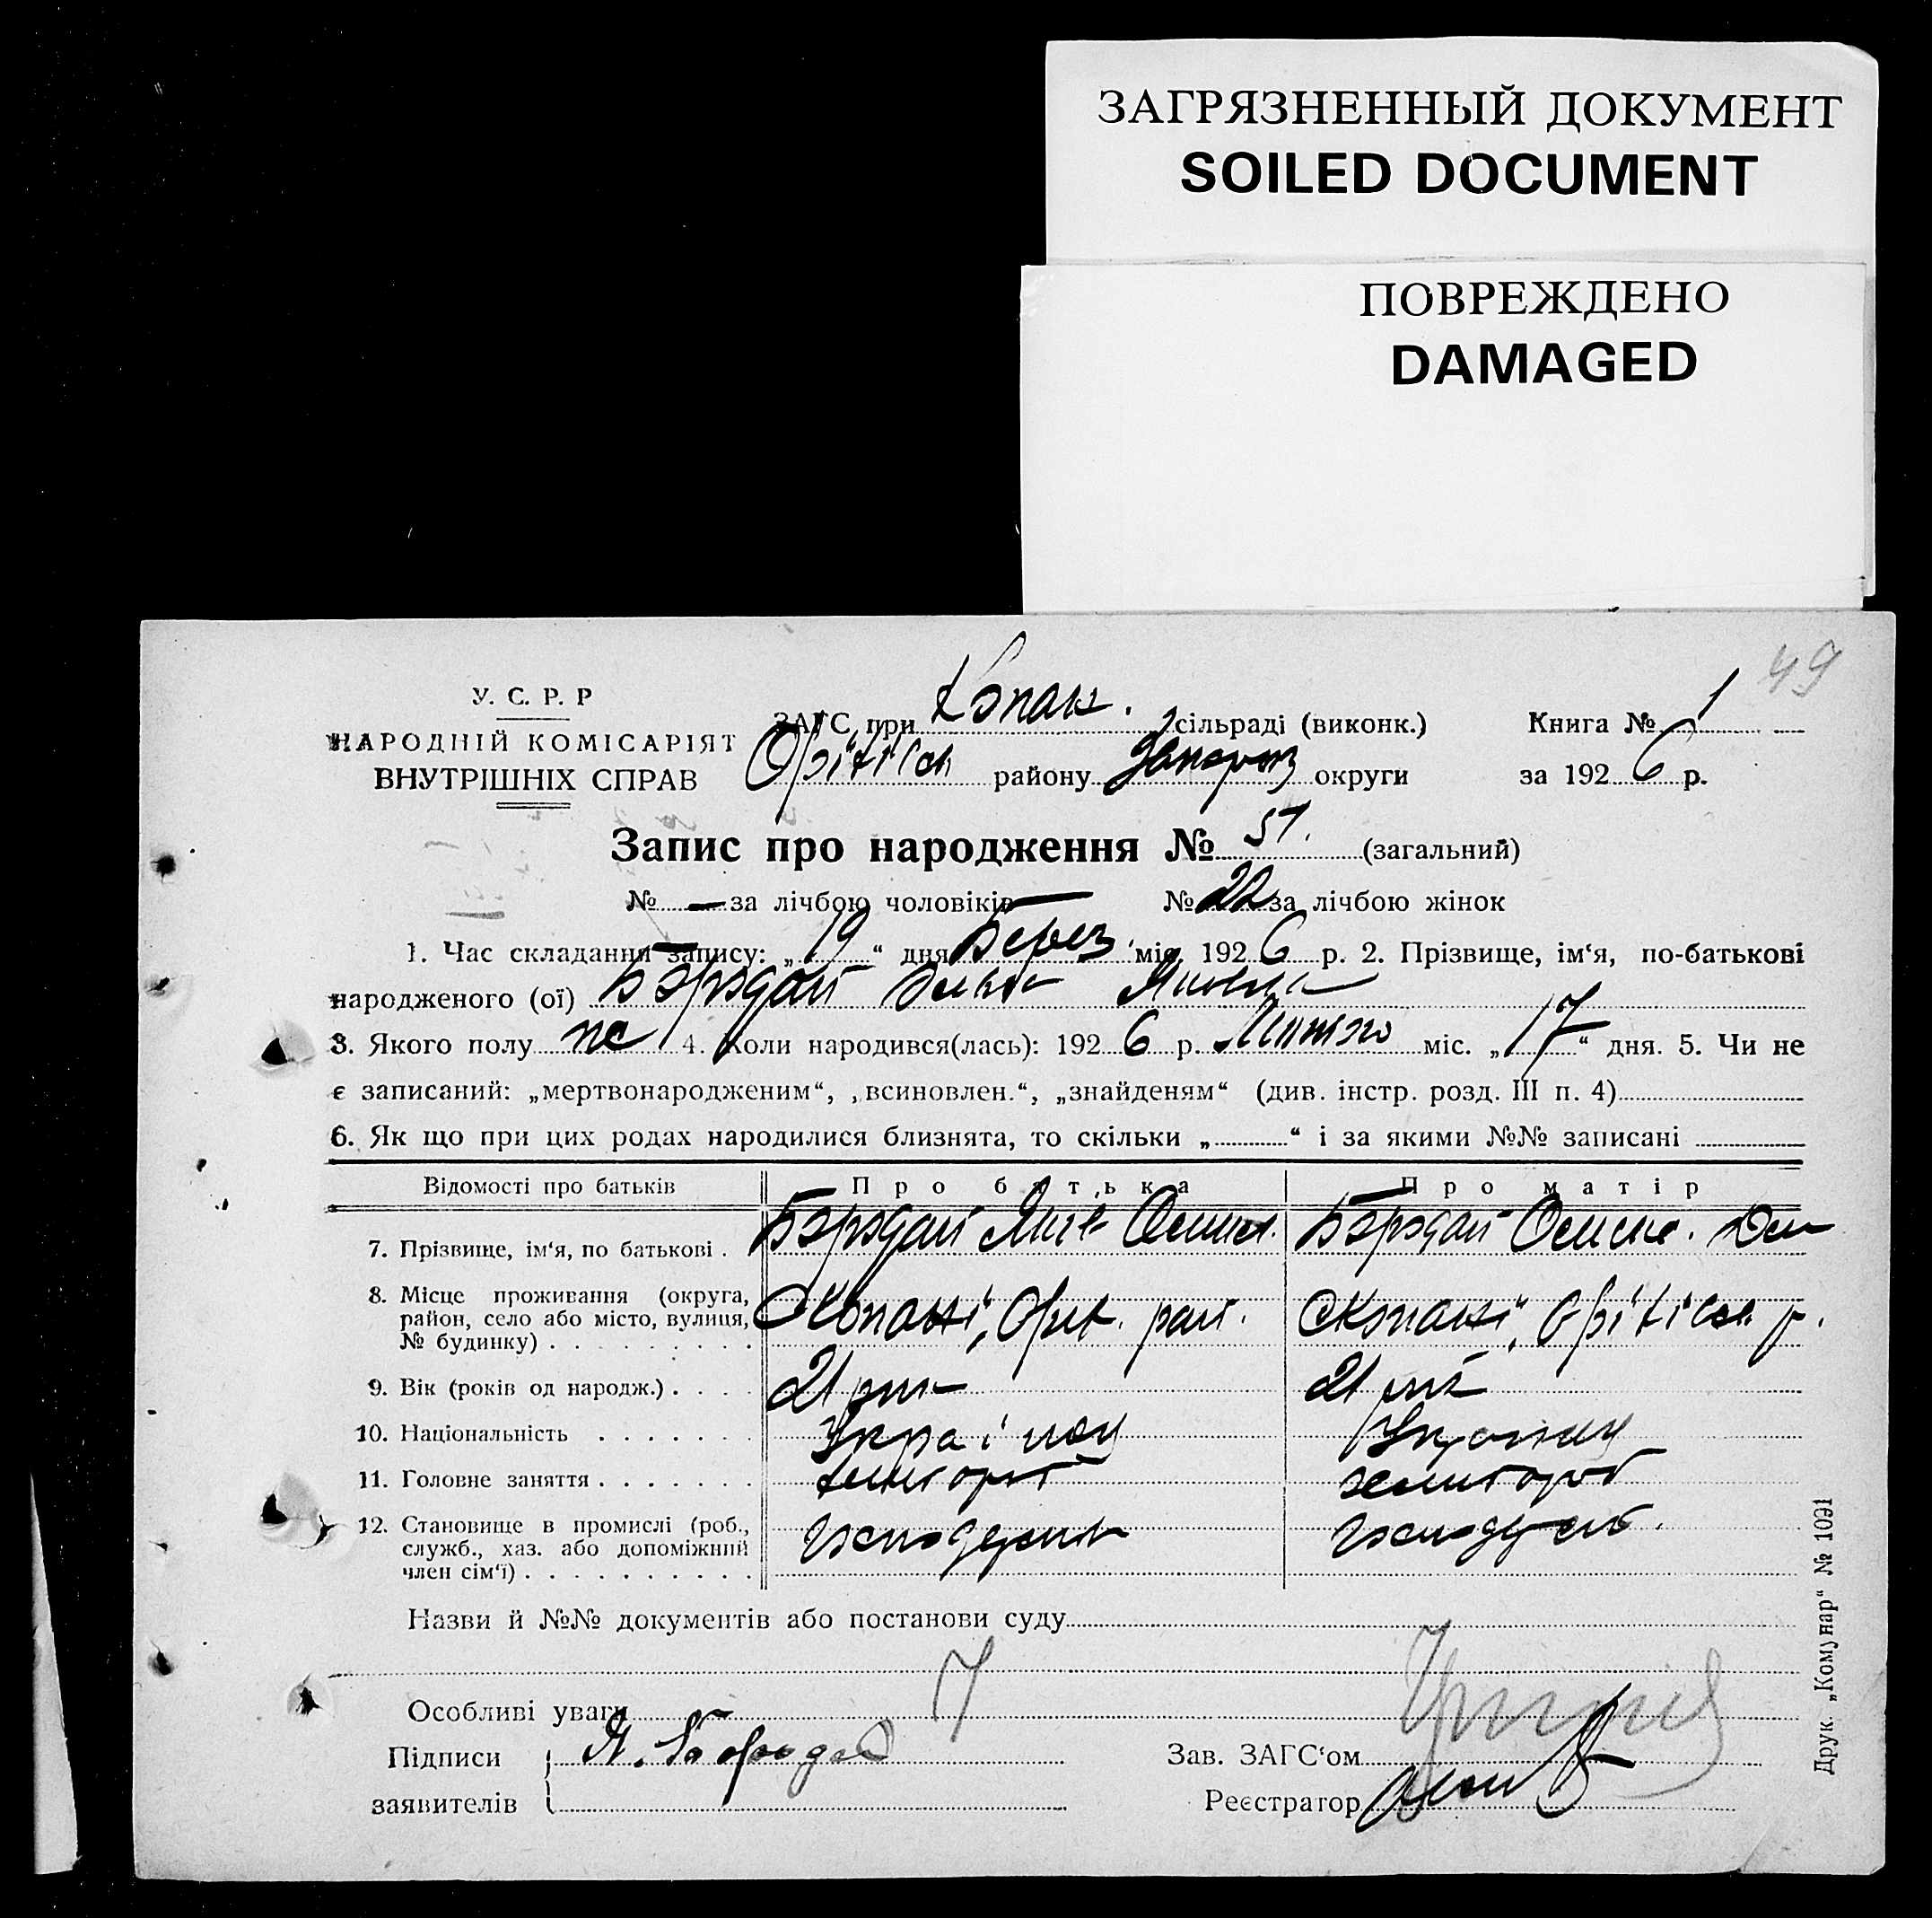 ЗАГРЯЗНЕННЫЙ ДОКУМЕНТ
SOILED DOCUMENT
ПОВРЕЖДЕНО
DAMAGED
49
У. С. Р. Р
НАРОДНІЙ КОМІСАРІЯТ
ВНУТРІШНІХ СПРАВ
ЗАГС при Копан. сільраді (виконк.) Книга № 1
Оріхівськ району Запоріз округи за 1926 р.
Запис про народження № 51. (загальний)
№ — за лічбою чоловіків № 22 за лічбою жінок
1. Час складання запису: „19“ дня Берез. міс. 1926 р. 2. Прізвище, ім‘я, по-батькові
народженого (ої) Бородай
3. Якого полу 4. Коли народився(лась): 1926 р. Лютого міс. „17“ дня. 5. Чи не
є записаний: „мертвонародженим“, „всиновлен.“, „знайденям“ (див. інстр. розд. III п. 4)
6. Як що при цих родах народилися близнята, то скільки „ “ і за якими №№ записані
Відомості про батьків Про батька Про матір
7. Прізвище, ім‘я, по батькові . Бородай Бородай
8. Місце проживання (округа,
район, село або місто, вулиця,
№ будинку)
Копані, Оріх. рай. Копані, р.
9. Вік (років од народж.) 21 рік 21 рік
10. Національність Українец Українец
11. Головне заняття хлібороб хлібороб
12. Становище в промислі (роб.,
служб., хаз. або допоміжний
член сім‘ї)
Назви й №№ документів або постанови суду
Особливі уваги
Підписи Я. Бородай Зав. ЗАГС‘ом
заявителів Реєстратор
Друк. „Комунар“ № 1091